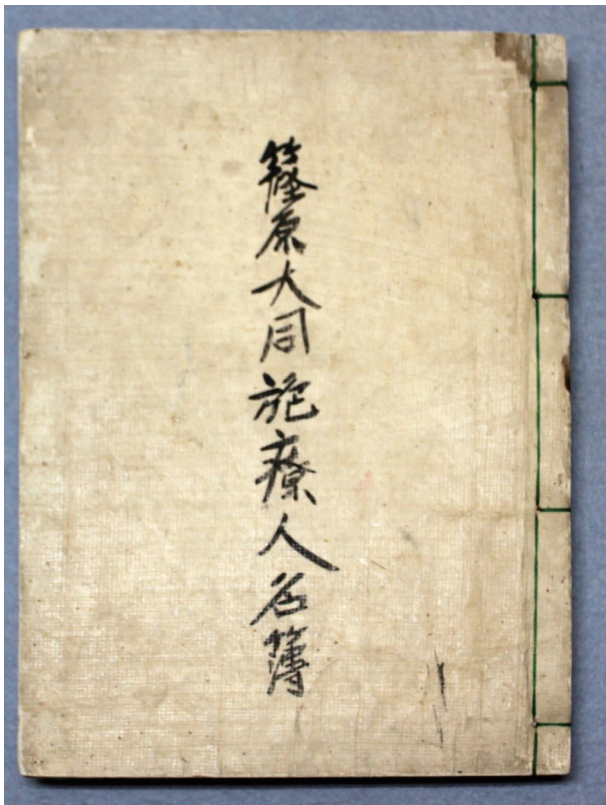 篠原大同施療人名簿